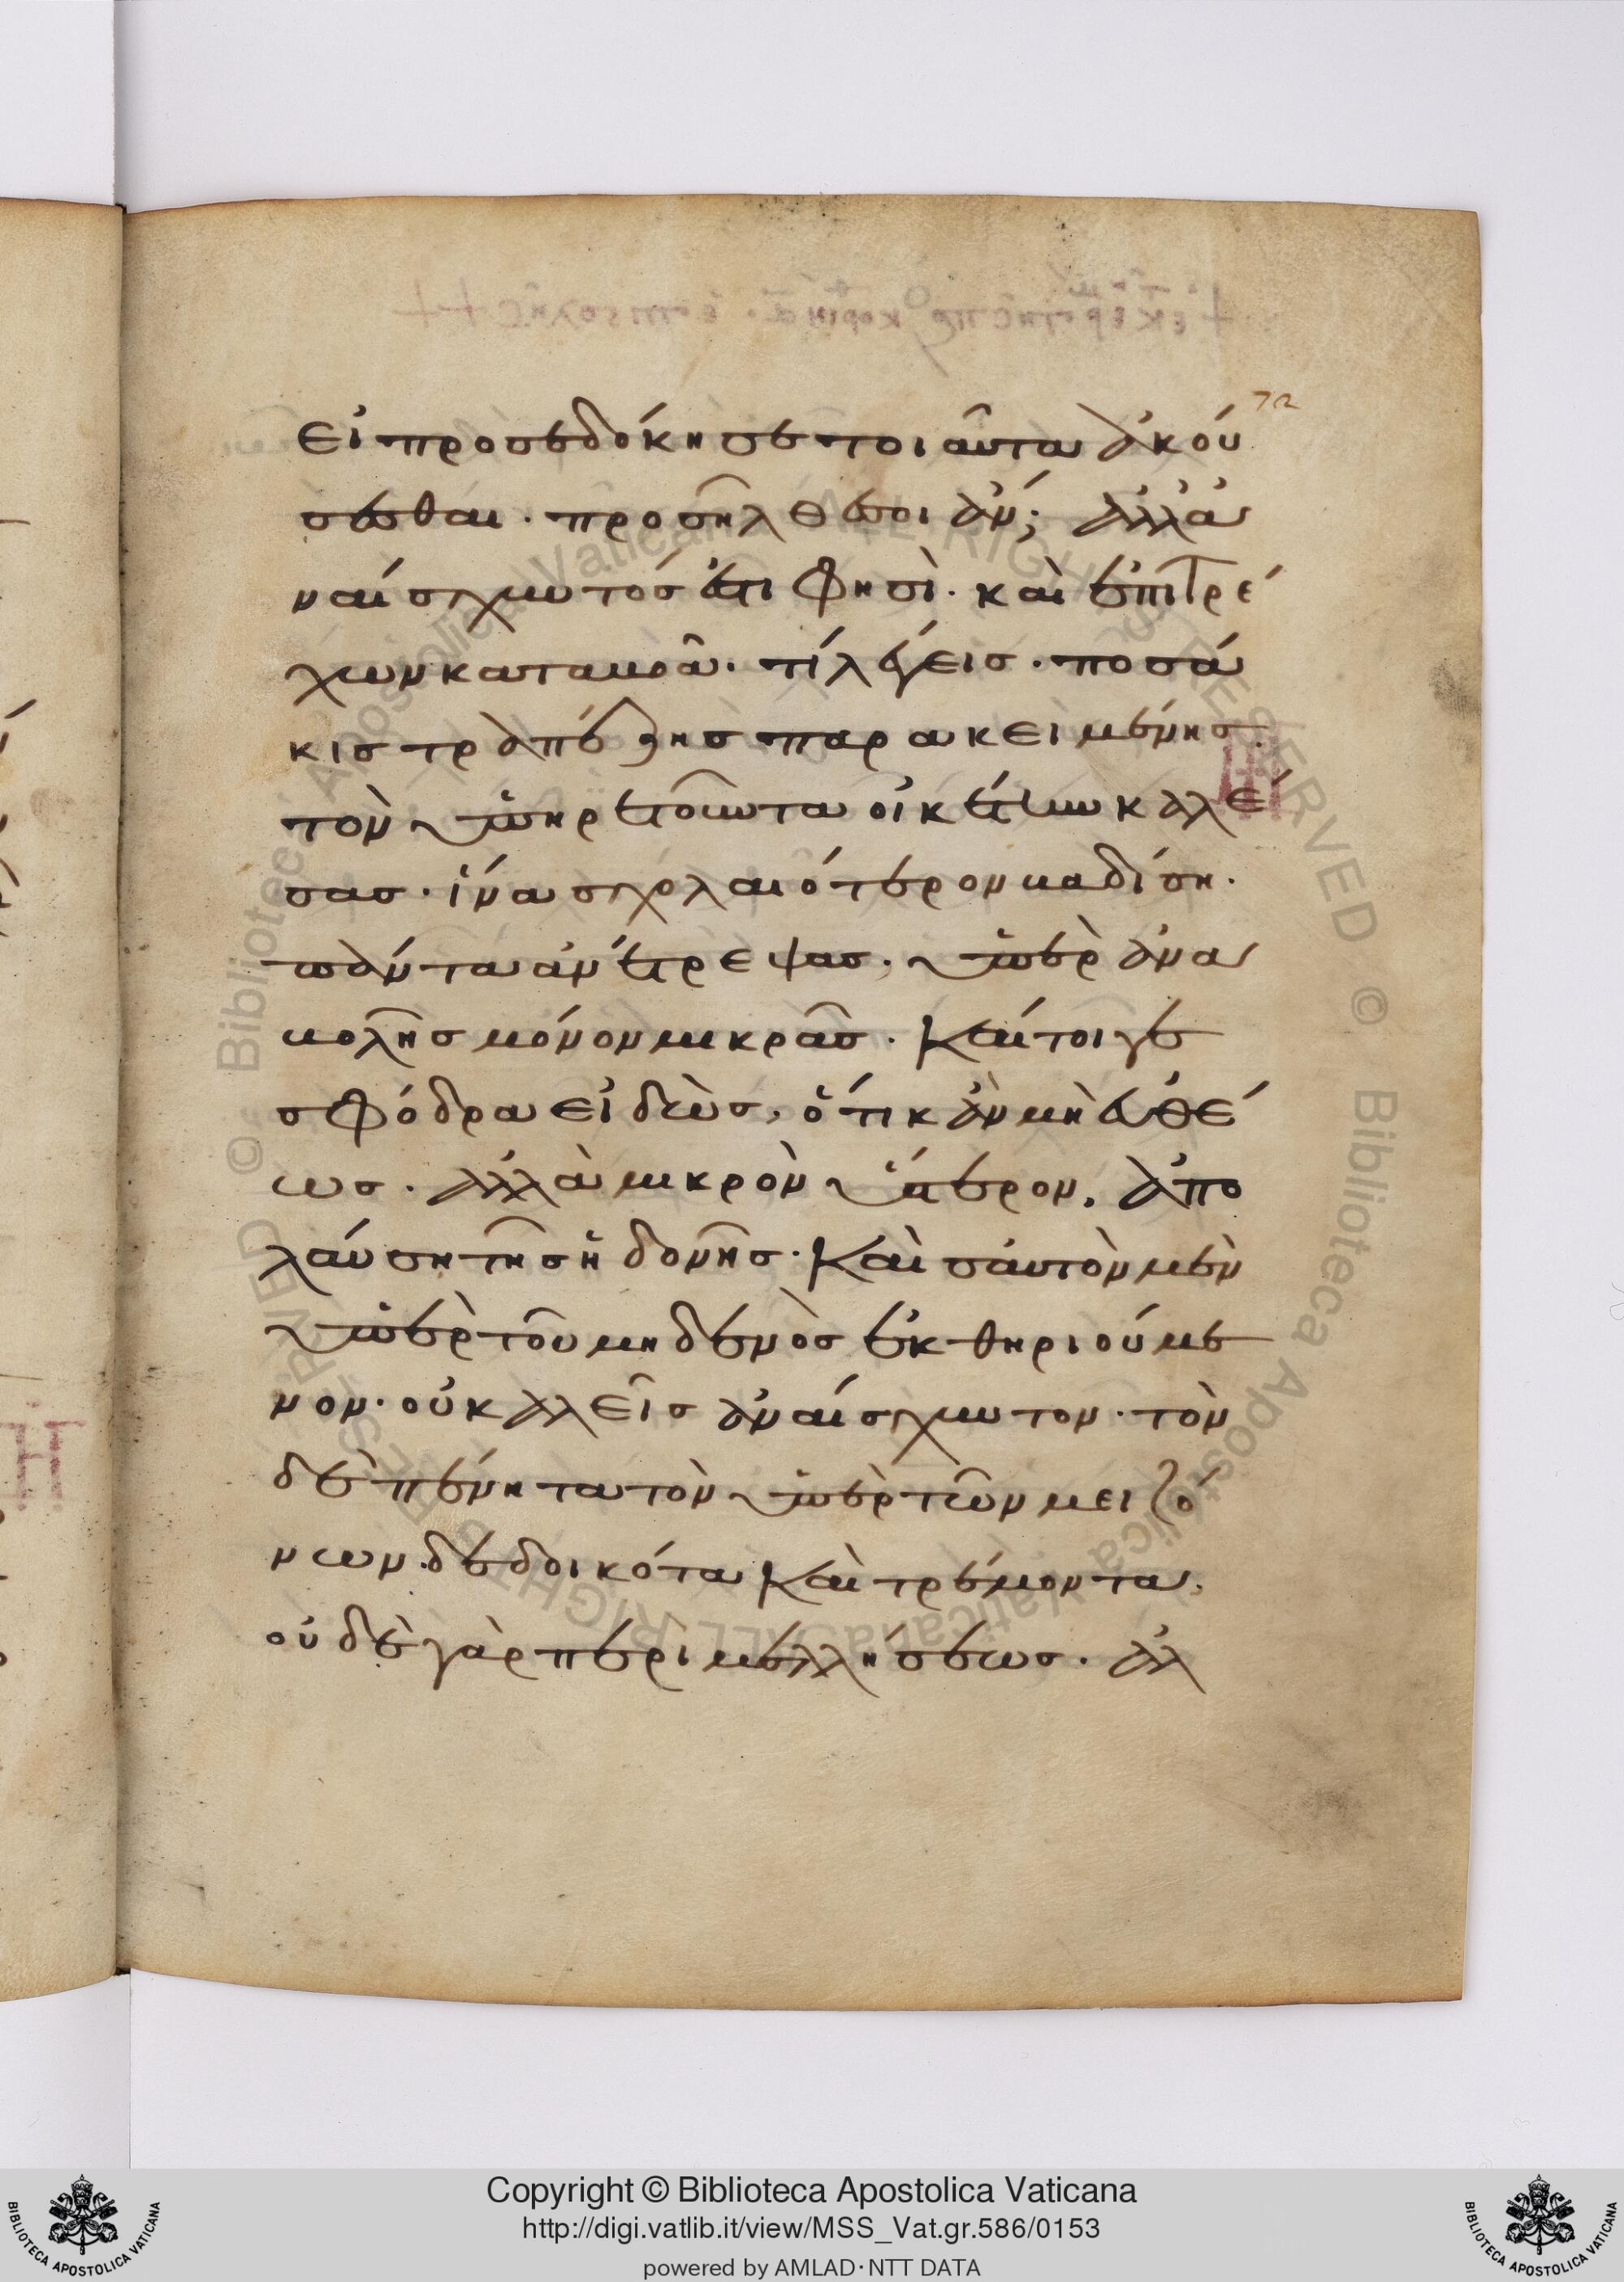 72
εἰ προσεδόκησε τοιαῦτα ἀκού
σεσθαι. προσῆλθέ σοι ἄν; ἀλλὰ
ναίσχυντός ἐστι φησὶ. καὶ ἐπιτρέ
χων καταμοᾶ. τί λέγεις. ποσά
κις τραπέζης παρακειμένης.
τὸν ὑπηρετοῦντα οἰκέτην καλέ
σας. ἵνα σχολαιότερον βαδίσῃ.
πάντα ἀνέτρεψας, ὑπὲρ ἀνα
βολῆς μόνον μικρᾶς. καίτοιγε
σφόδρα εἰδὼς, ὅτι κἂν μὴ εὐθέ
ως. ἀλλὰ μικρὸν ὕστερον, ἀπο
λαύσῃ τῆς ἡδονῆς. Καὶ σαυτὸν μὲν
ὑπὲρ τοῦ μηδενὸς ἐκθηριούμε
νον. οὐ καλεῖς ἀναίσχυντον. τὸν
δὲ πένητα τὸν ὑπὲρ τῶν μειζό
νων δεδοικότα καὶ τρέμοντα,
οὐδὲ γὰρ περὶ μελλήσεως. ἀλ
Copyright © Biblioteca Apostolica Vaticana
http://digi.vatlib.it/view/MSS_Vat.gr.586/0153
powered by AMLAD·NTT DATA
BIBLIOTECA APOSTOLICA VATICANA
BIBLIOTECA APOSTOLICA VATICANA